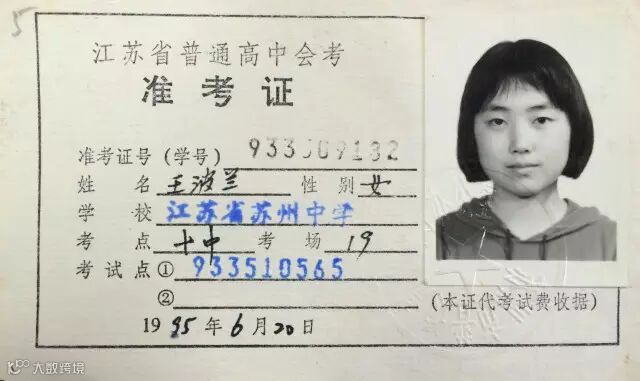 5
江苏省普通高中会考
准考证
准考证号(学号) 933509132
姓名 王波兰 性别 女
学校 江苏省苏州中学
考点 十中 考场 19
考试点① 933510565
②
1995年6月20日
(本证代考试费收据)
大数跨境